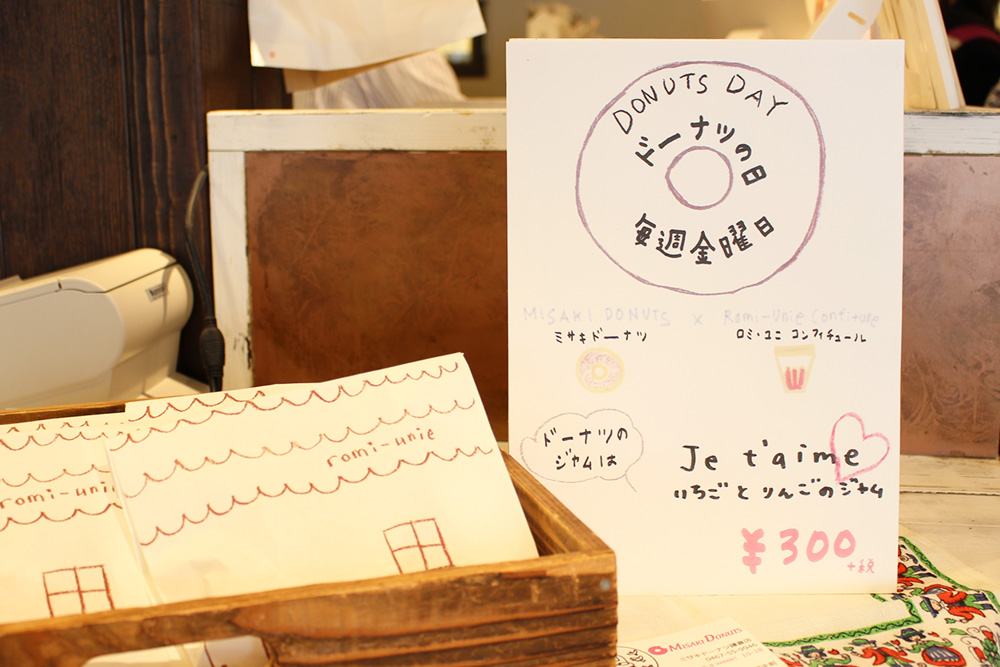 DONUTS DAY
ドーナツの日
毎週金曜日
MISAKI DONUTS × Romi-Unie Confiture
ミサキドーナツ
ロミ・ユニ コンフィチュール
ドーナツの
ジャムは
Je t'aime
いちごとりんごのジャム
¥300
+税
romi-unie
romi-unie
MISAKI DONUTS
ミサキドーナツ鎌倉店